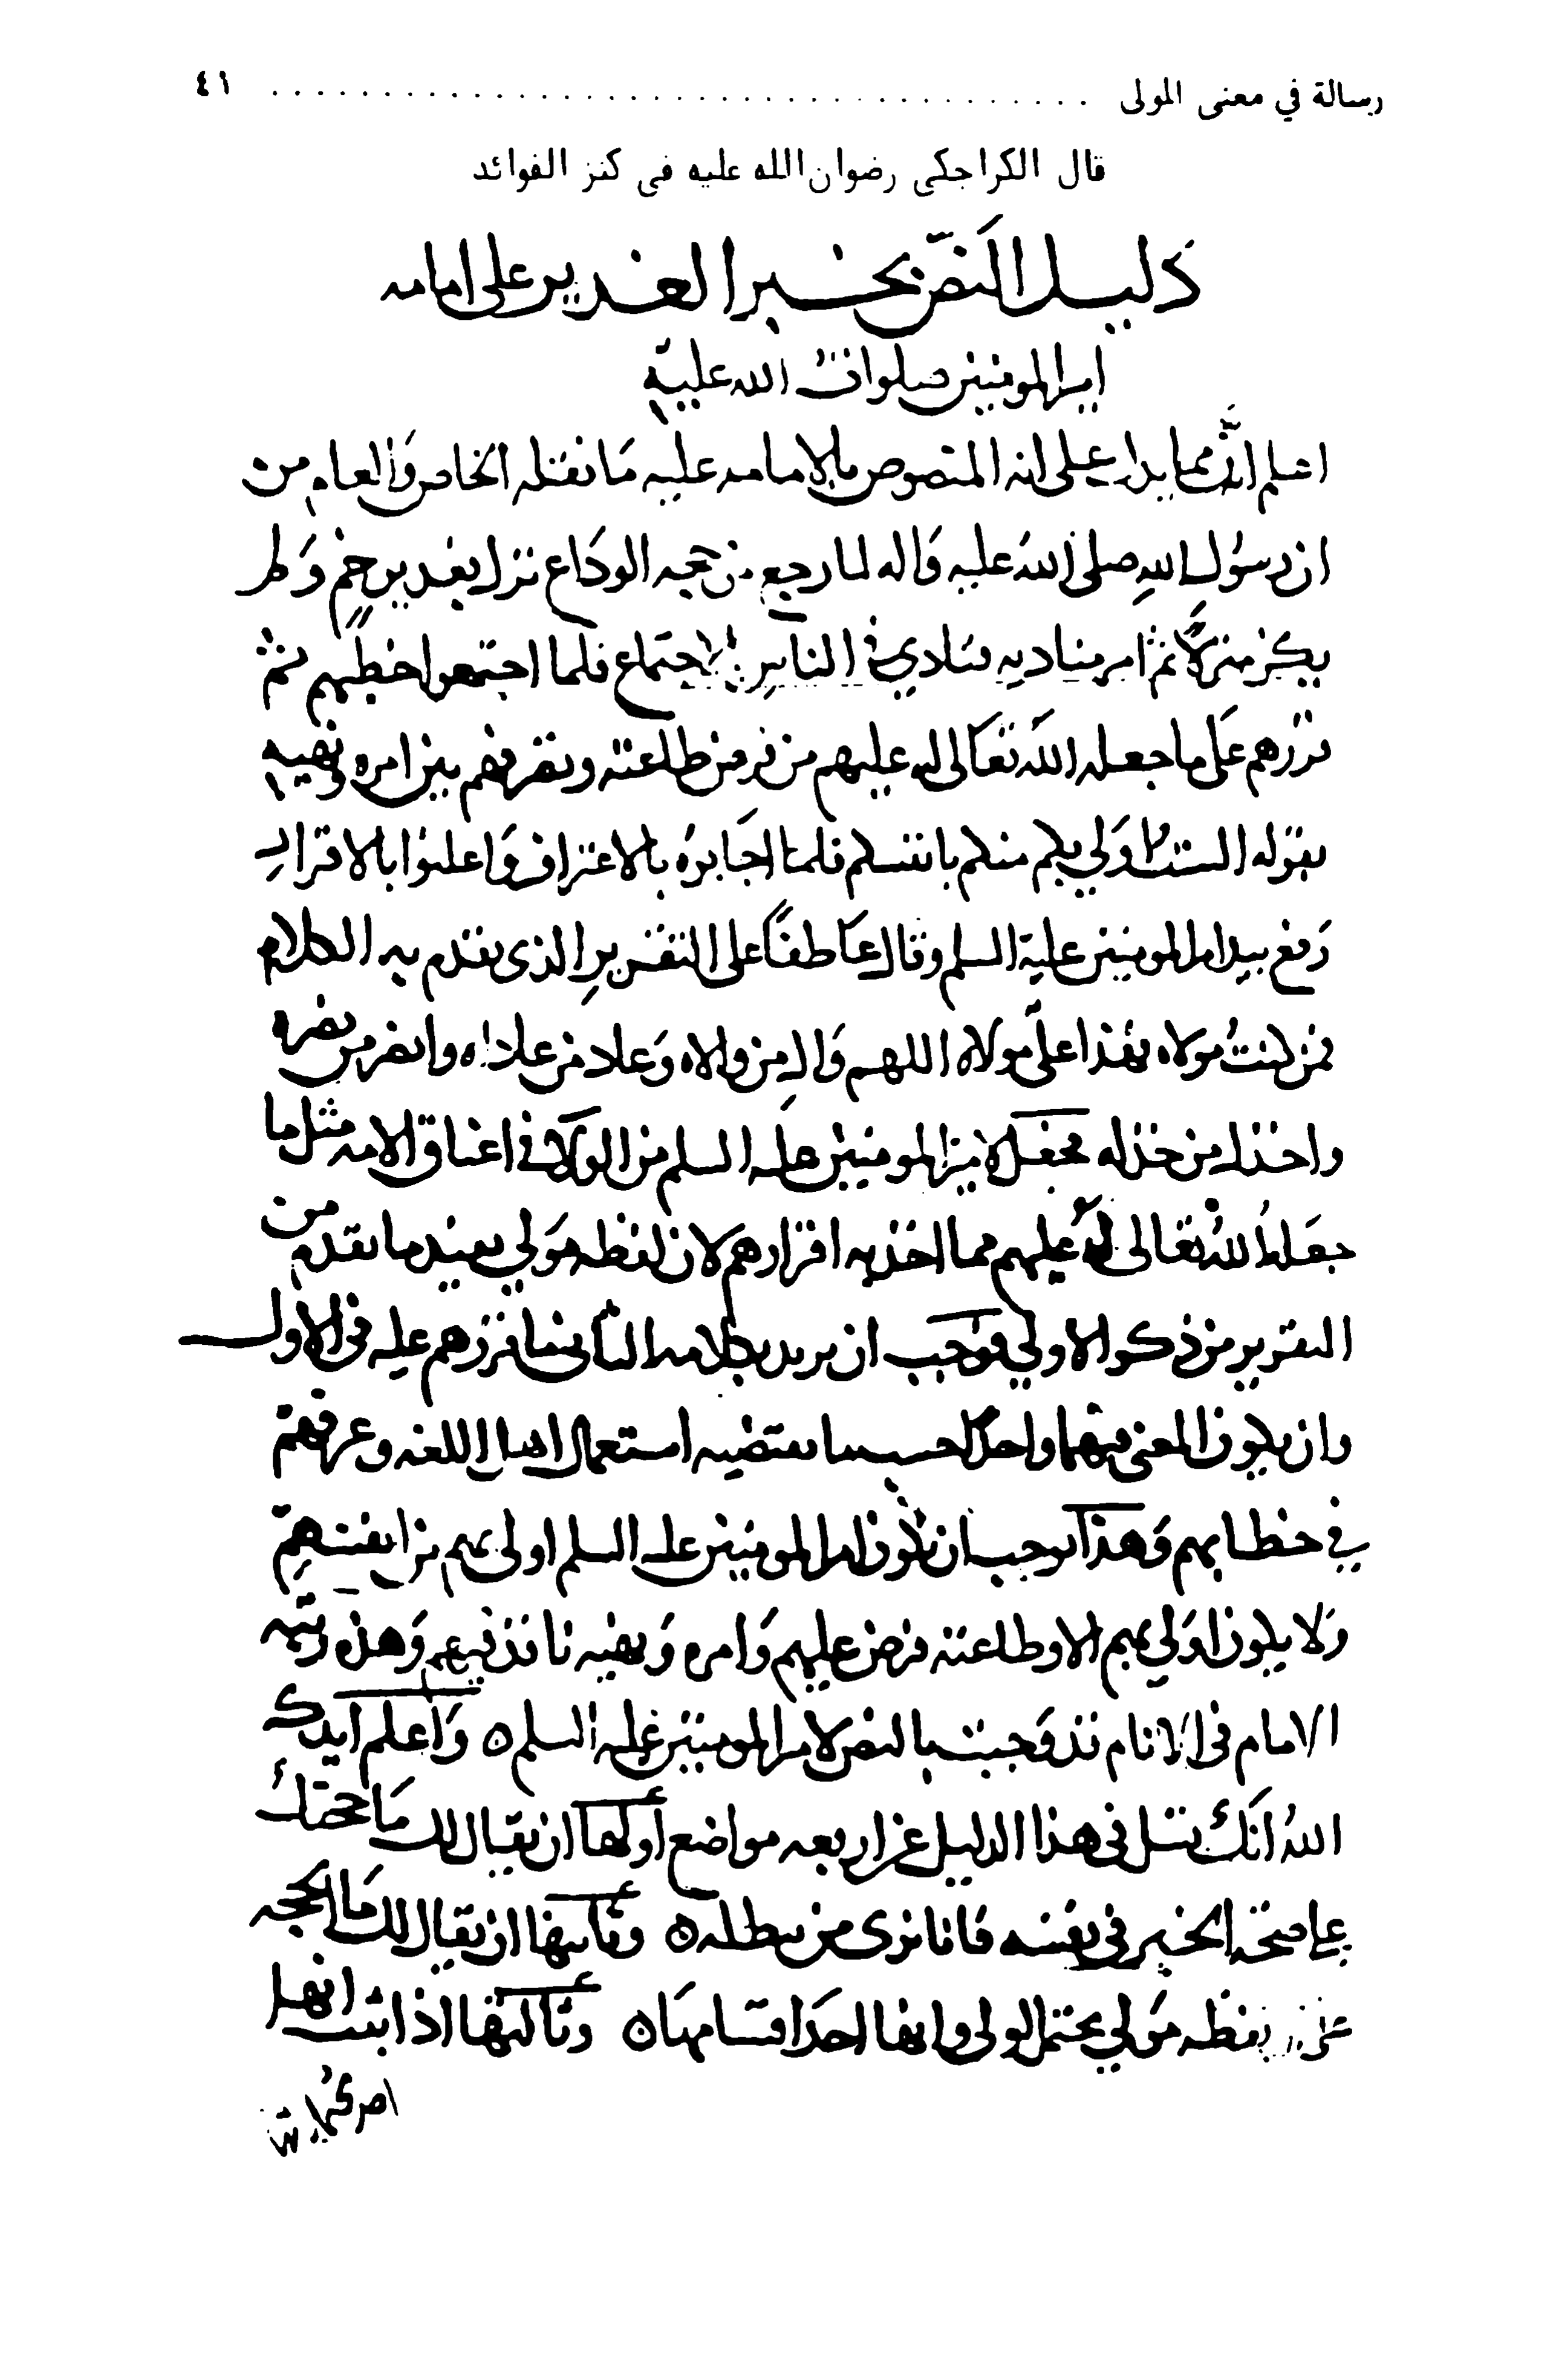 رسالة في معنى المولى ........................................ ٤١
قال الكراجكي رضوان الله عليه في كنز الفوائد
دليل النص بخبر الغدير على امامه
امير المومنين صلوات الله عليه
اعلم ان مما يدل على انه المنصوص بالامامه عليه ما نقله الخاص والعام من
ان رسول الله صلى الله عليه واله لما رجع من حجه الوداع نزل بغدير خم ولم
يكن منزلا ثم امر مناديه فنادي في الناس بالاجتماع فلما اجتمعوا خطبهم ثم
قررهم على ما جعله الله تعالى له عليهم من فرض طاعته وتصرفهم بين امره ونهيه
بقوله الست اولي بكم منكم بانفسكم فلما اجابوه بالاعتراف واعلنوا بالاقرار
رفع بيد امير المومنين عليه السلم وقال عاطفا على التقرير الذي تقدم به الكلام
فمن كنت مولاه فهذا علي مولاه اللهم وال من والاه وعاد من عاداه وانصر من نصره
واخذل من خذله فجعل لامير المومنين عليه السلم من الولا في اعناق الامه مثل ما
جعله الله تعالى له عليهم مما اخذ به اقرارهم لان لفظه مولي يفيد ما تقدم من
التقرير من ذكر الاولي فوجب ان يريد بكلامه الثاني ما قررهم عليه في الاول
وان يكون المعني فيهما واحدا حسبما يقتضيه استعمال اهل اللغه وعرفهم
في خطابهم وهذا يوجب ان يكون امير المومنين عليه السلم اولى بهم من انفسهم
ولا يكون اولي بهم الا وطاعته فرض عليهم وامره ونهيه نافذ فيهم وهذه رتبه
الامام في الانام قد وجبت بالنص لامير المومنين عليه السلم ه واعلم ايدك
الله انك تسل في هذا الدليل عن اربعه مواضع اولها ان يقال لك ما حجتك
علي صحه الخبر في نفسه فانا نرى من يبطله ه وثانيها ان يقال لك ما الحجه
علي ان لفظه مولي يحتمل اولى وانها احد اقسامها ه وثالثها اذا ثبت انها
احد